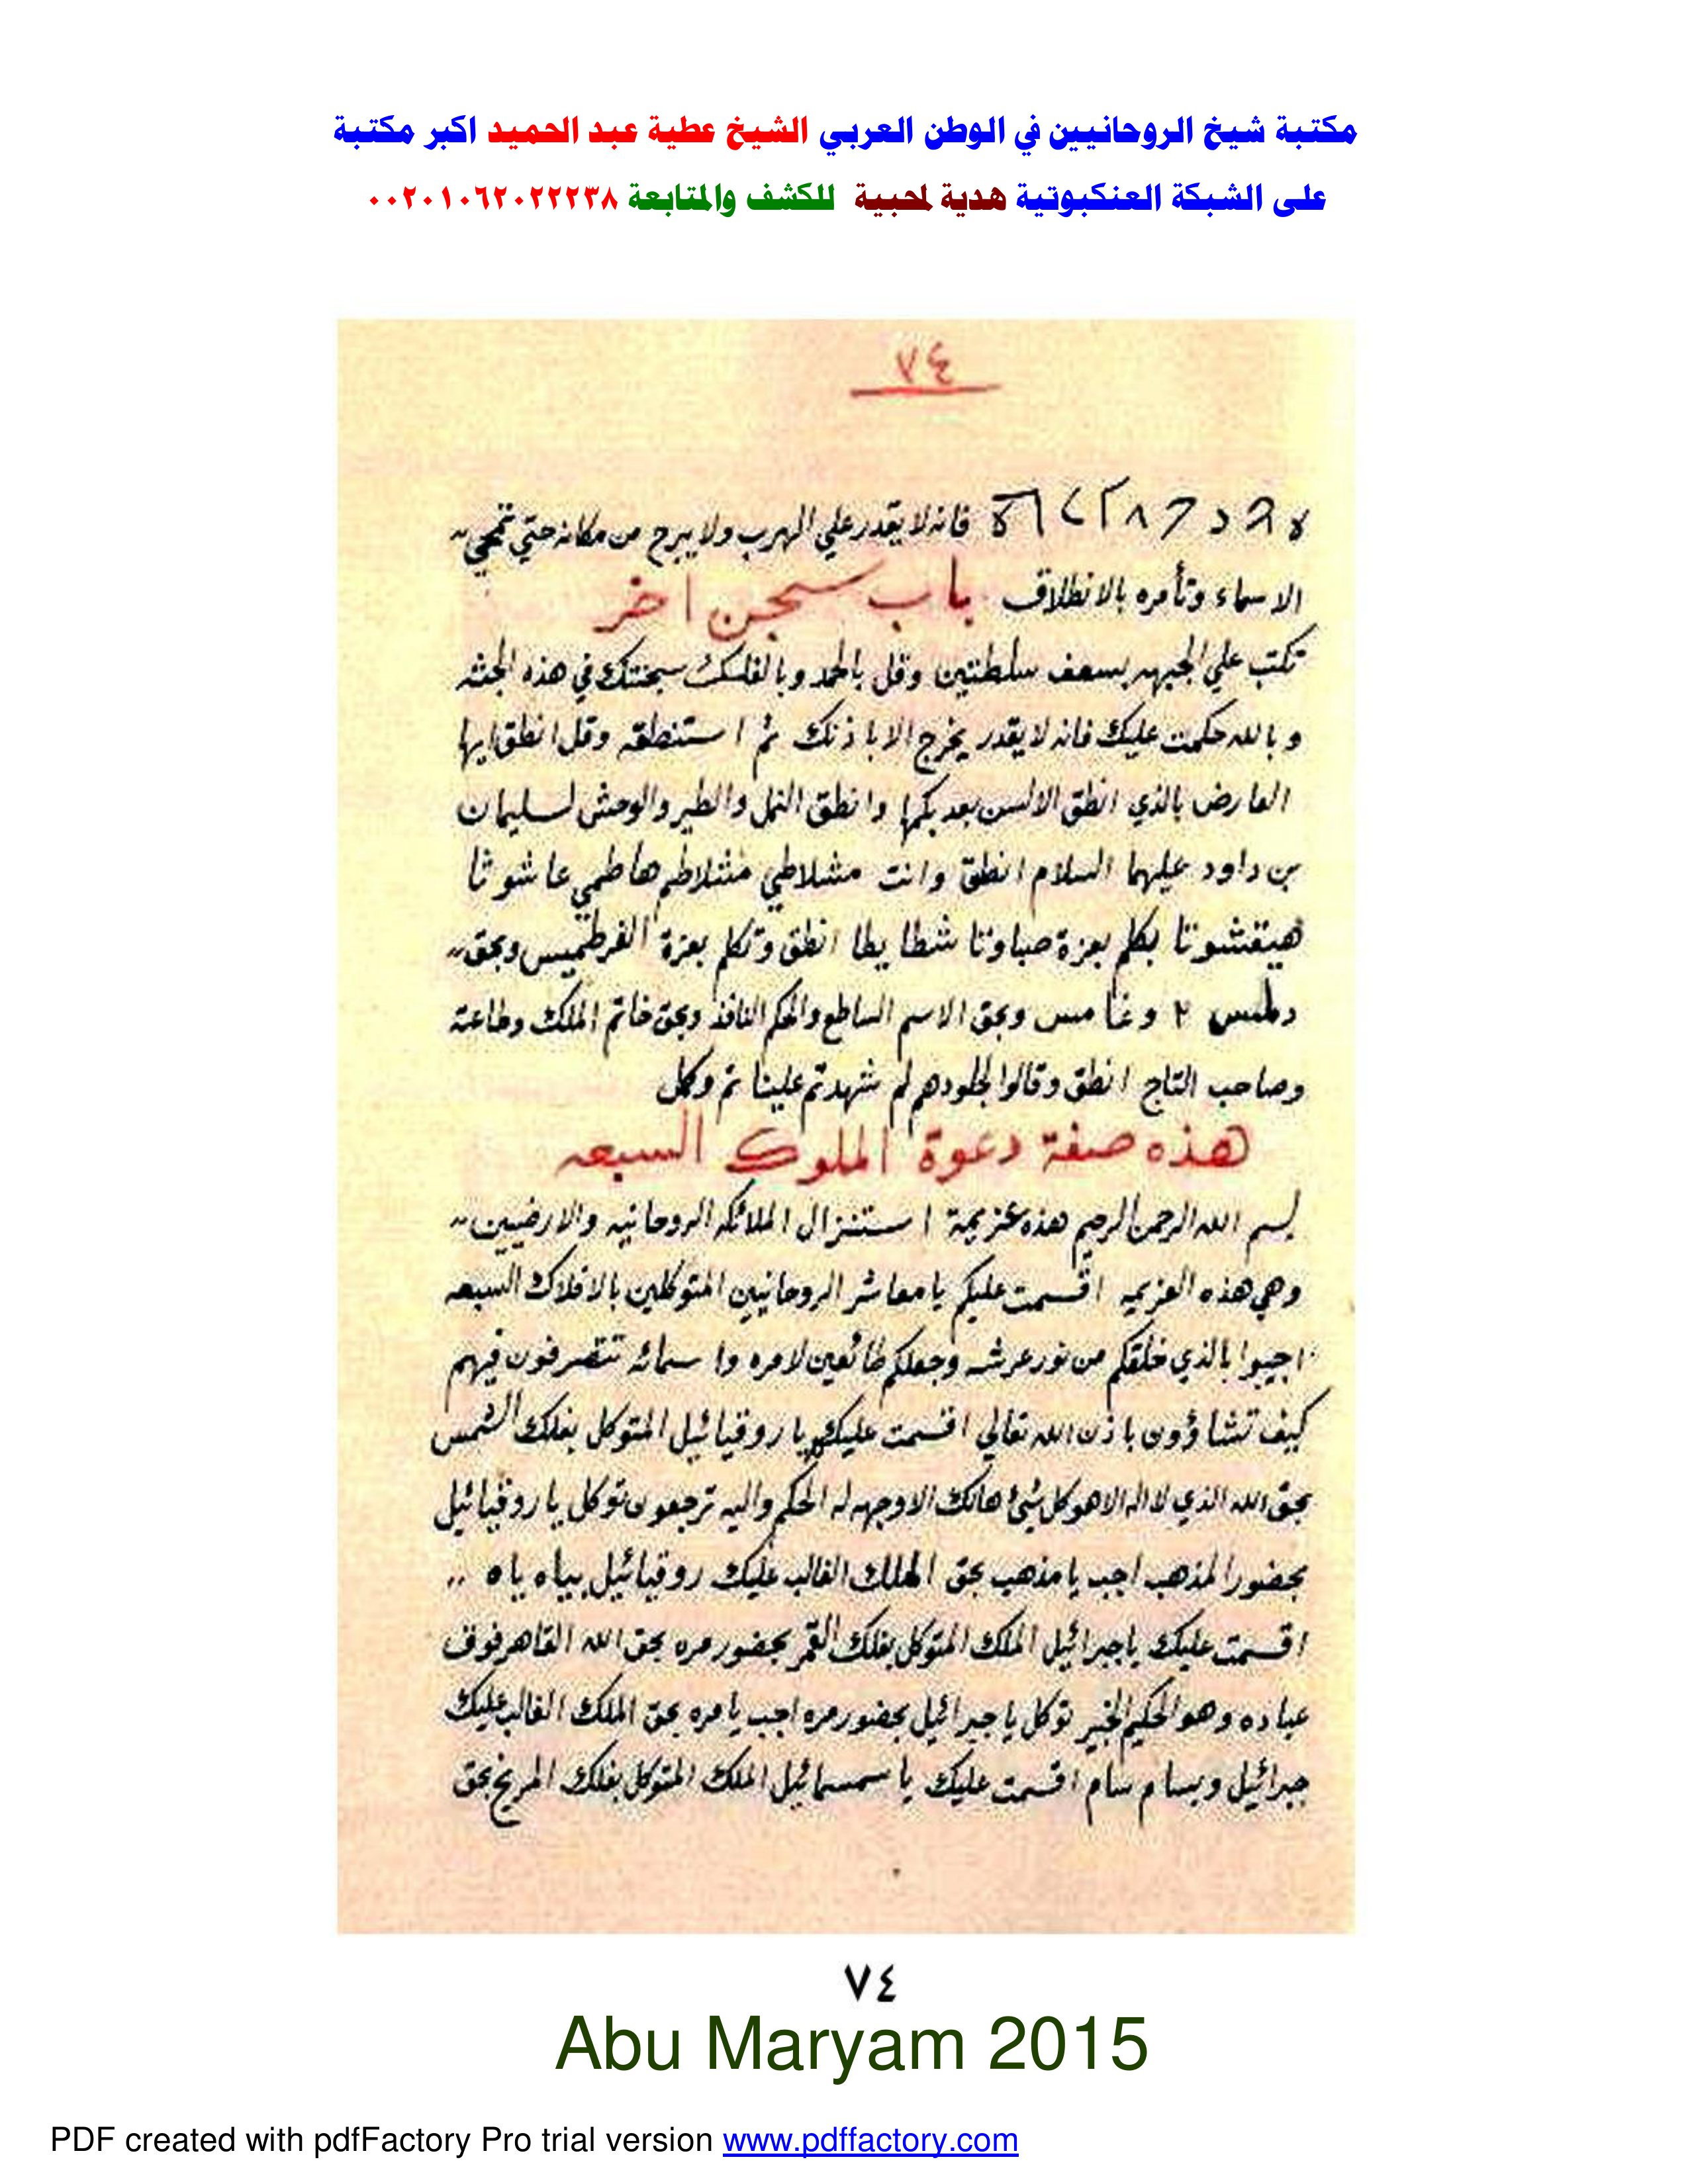 مكتبة شيخ الروحانيين في الوطن العربي الشيخ عطية عبد الحميد اكبر مكتبة
على الشبكة العنكبوتية هدية لمحبية للكشف والمتابعة ٠٠٢٠١٠٦٢٠٢٢٢٣٨
٧٤
فانه لا يقدر علي الهرب ولا يبرح من مكانه حتي تمحي
الاسماء وتأمره بالانطلاق باب سجن اخر
تكتب علي الجبهه بسعف سلطتين وقل بالحمد وبالفلك سجنتك في هذه الجثه
وبالله حكمت عليك فانه لا يقدر يخرج الا باذنك ثم استنطقه وقل انطق ايها
العارض بالذي انطق الالسن بعد بكمها وانطق النمل والطير والوحش لسليمان
بن داود عليهما السلام انطق وانت مشلاطي مشلاطم هاطمي عاشوثا
هيقشوثا بكلم بعزة صباوتا شطا يطا انطق وتكلم بعزة الفرطميس وبحق
دملس ٢ وغا مس وبحق الاسم الساطع والحكم النافذ وبحق خاتم الملك وطاعة
وصاحب التاج انطق وقالوا لجلودهم لم شهدتم علينا تم وكل
هذه صفة دعوة الملوك السبعه
بسم الله الرحمن الرحيم هذه عزيمة استنزال الملائكه الروحانيه والارضيين
وهي هذه العزيمه اقسمت عليكم يا معاشر الروحانيين المتوكلين بالافلاك السبعه
اجيبوا بالذي خلقكم من نور عرشه وجعلكم طائعين لامره واسمائه تتصرفون فيهم
كيف تشاؤون باذن الله تعالي اقسمت عليك يا روقيائيل المتوكل بفلك الشمس
بحق الله الذي لا اله الا هو كل شئ هالك الا وجهه له الحكم واليه ترجعون توكل يا روقيائيل
بحضور المذهب اجب يا مذهب بحق الملك الغالب عليك روقيائيل بياه ياه
اقسمت عليك يا جبرائيل الملك المتوكل بفلك القمر بحضور مره بحق الله القاهر فوق
عباده وهو الحكيم الخبير توكل يا جبرائيل بحضور مره اجب يا مره بحق الملك الغالب عليك
جبرائيل وبسام سام اقسمت عليك يا سمسمائيل الملك المتوكل بفلك المريخ بحق
٧٤
Abu Maryam 2015
PDF created with pdfFactory Pro trial version www.pdffactory.com